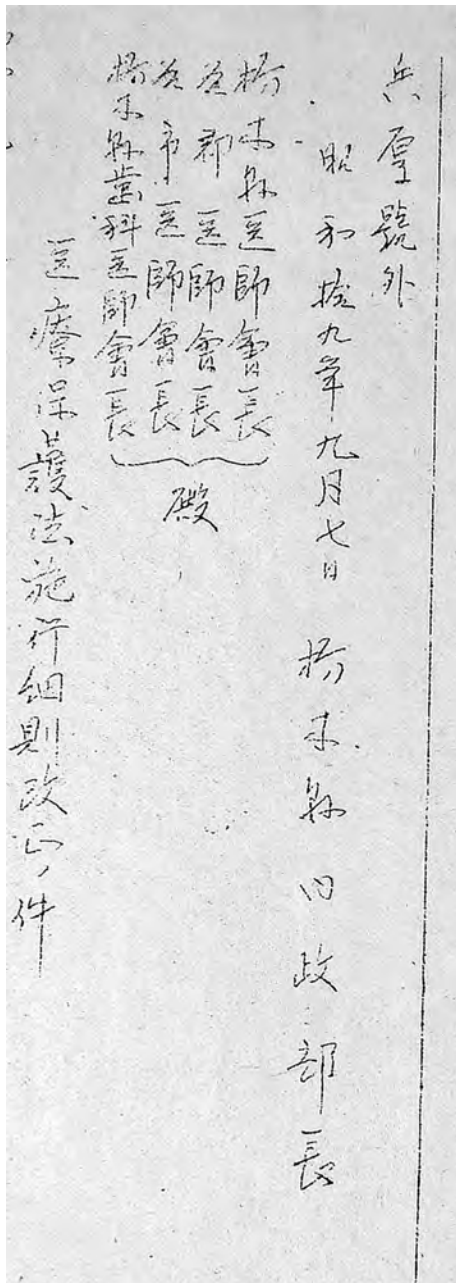 兵厚號外
昭和拾九年九月七日 栃木縣内政部長
栃木縣医師會長
各郡医師會長
各市医師會長
栃木縣歯科医師會長
殿
医療保護法施行細則改正ノ件